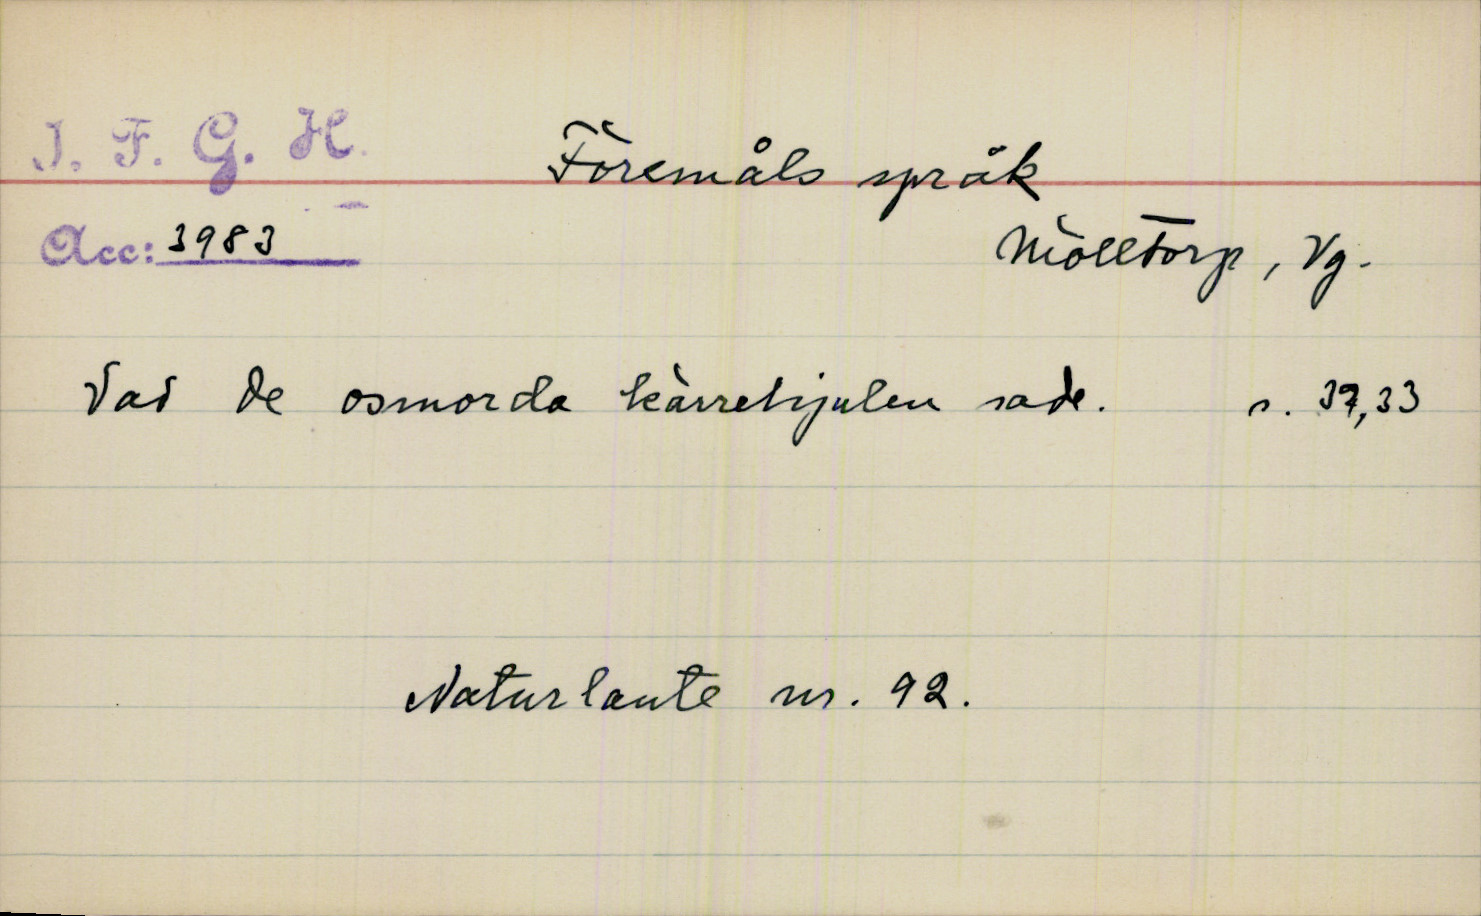 I. F. G. H.
Föremåls språk
Acc: 3983
Mölltorp, Vg.
Vad de osmorda kärrehjulen sade. s. 37,33
Naturlaute nr. 92.